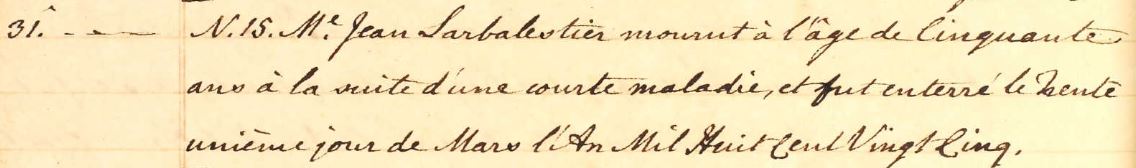 31. - - — N. 15. Mr. Jean Larbalestier mourut à l'âge de Cinquante
ans à la suite d'une courte maladie, et fut enterré le Trente
unième jour de Mars l'An Mil Huit Cent Vingt Cinq.